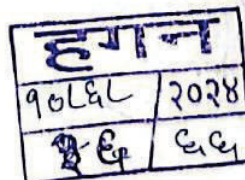 हगन
१०८६८ २०२४
३६ ६६